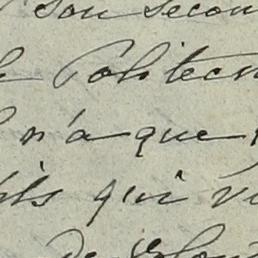 son secon
Politecn
n'a que
fils qui v
de